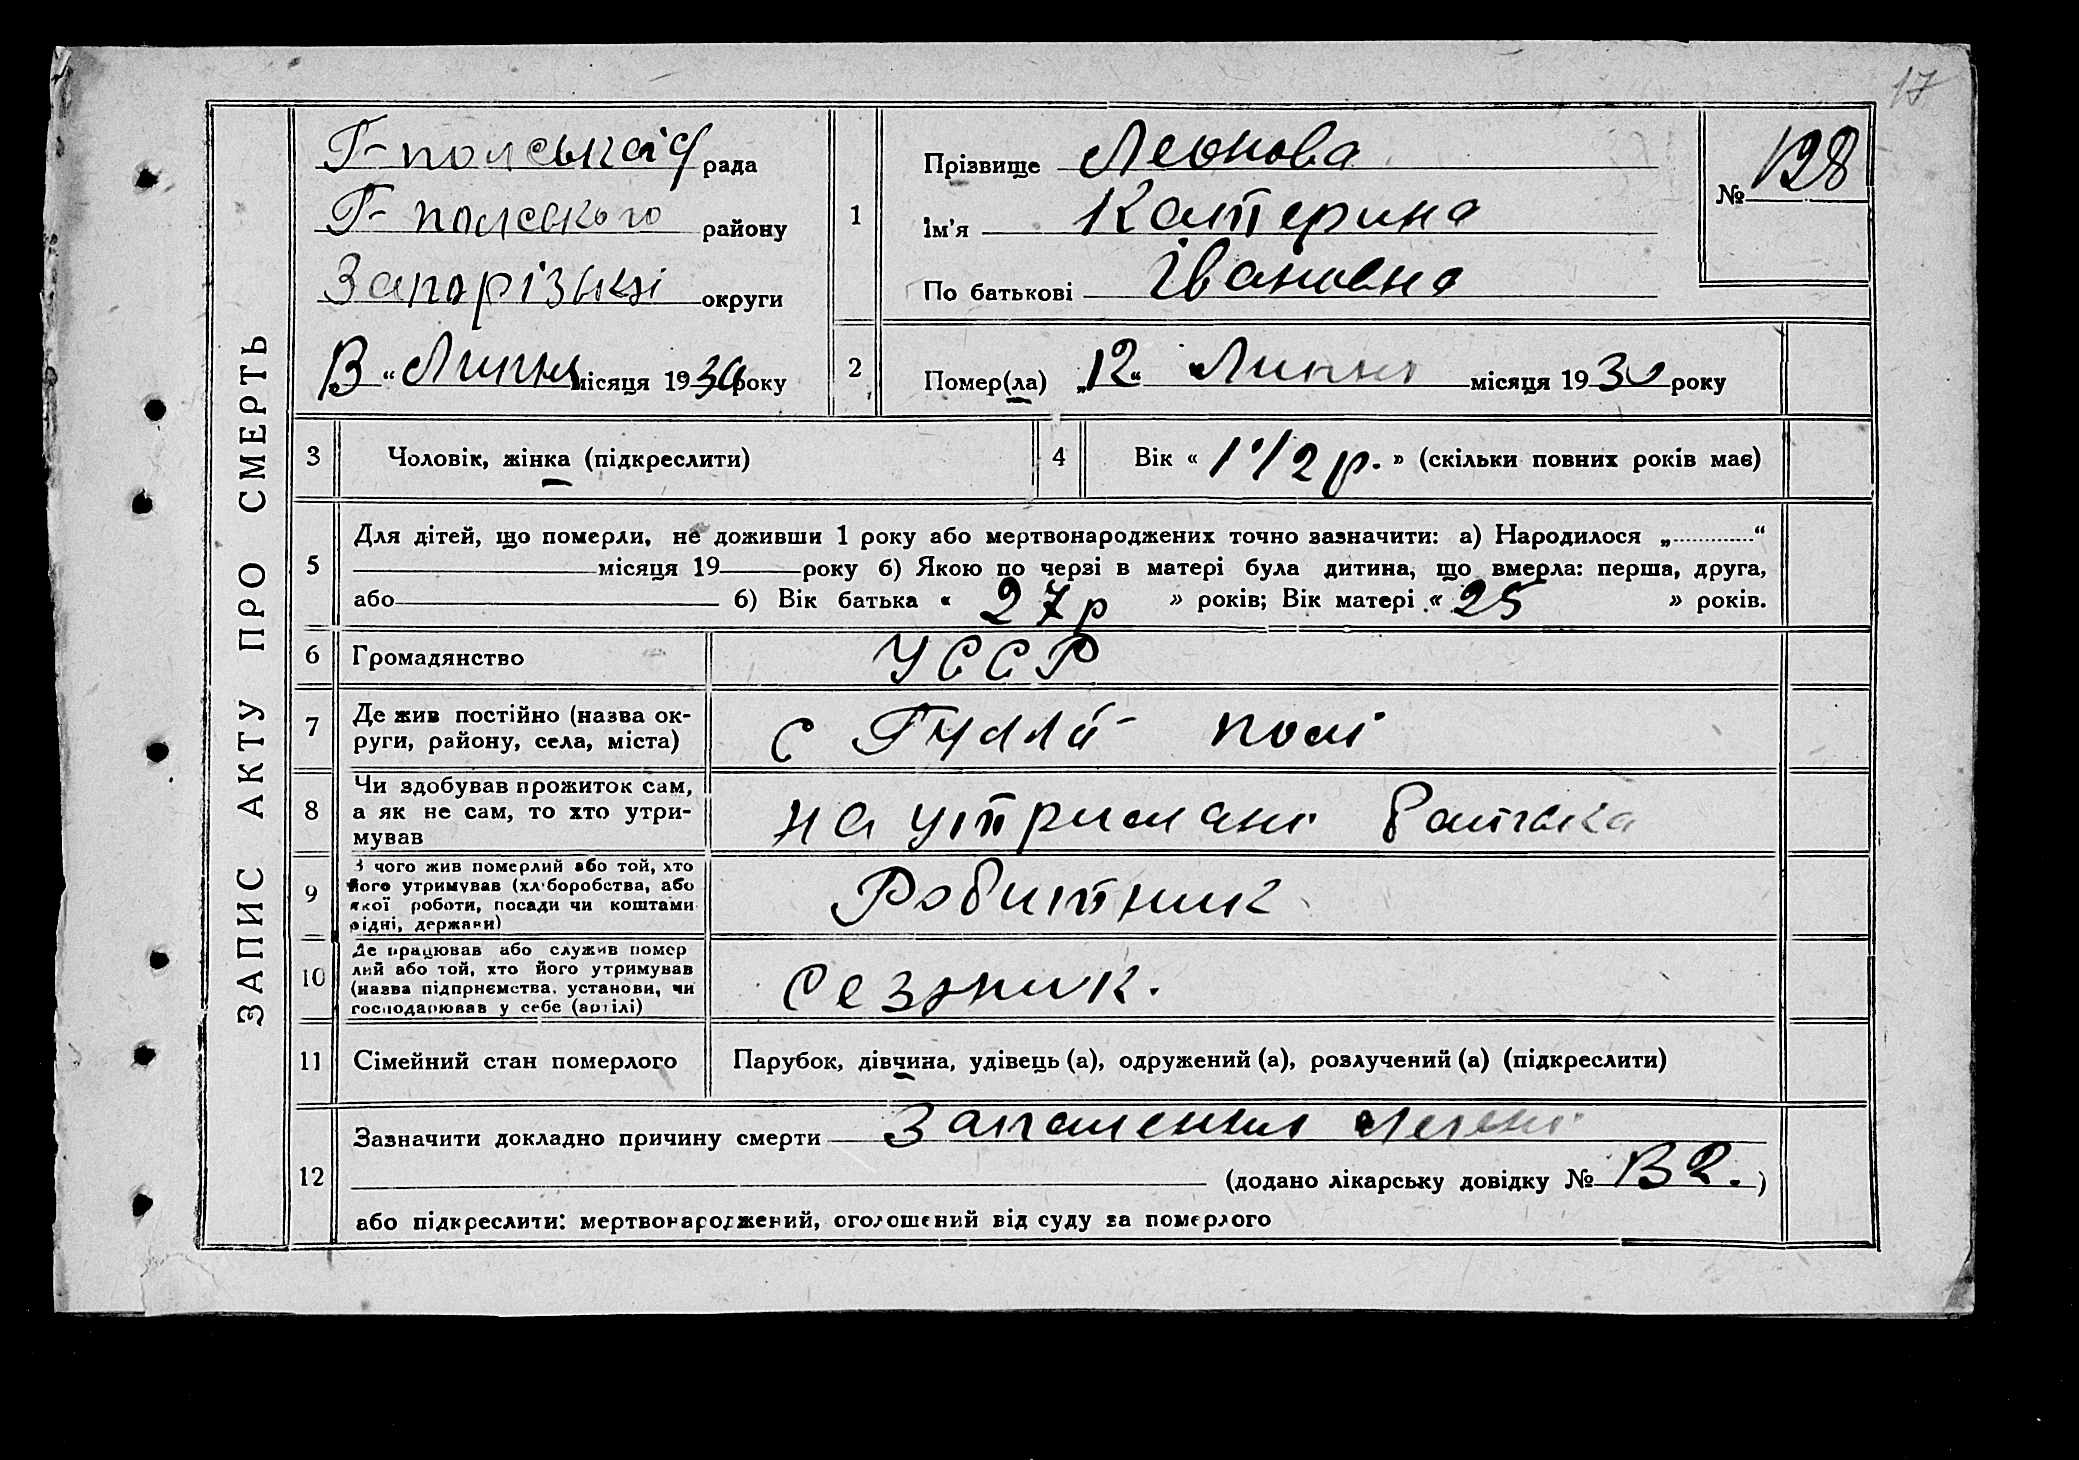 17
ЗАПИС АКТУ ПРО СМЕРТЬ
Г-полська рада
Г-полського району
Запорізькі округи
13 “ Липня місяця 1930 року
1
Прізвище Леонова
Ім'я Катерина
По батькові Івановна
№ 128
2
Помер(ла) „12“ Липня місяця 1930 року
3 Чоловік, жінка (підкреслити)
4 Вік « 1 1/2 р. » (скільки повних років має)
5
Для дітей, що померли, не доживши 1 року або мертвонароджених точно зазначити: а) Народилося „............“
місяця 19 року б) Якою по черзі в матері була дитина, що вмерла: перша, друга,
або б) Вік батька « 27 р » років; Вік матері « 25 » років.
6 Громадянство УССР
7 Де жив постійно (назва ок-
руги, району, села, міста)
с Гуляй-полі
8 Чи здобував прожиток сам,
а як не сам, то хто утри-
мував
на утримані батька
9 З чого жив померлий або той, хто
його утримував (хліборобства, або
якої роботи, посади чи коштами
рідні, держави)
Робитник
10 Де працював або служив помер
лий або той, хто його утримував
(назва підприємства, установи, чи
господарював у себе (артілі)
сезоник.
11 Сімейний стан померлого Парубок, дівчина, удівець (а), одружений (а), розлучений (а) (підкреслити)
12
Зазначити докладно причину смерти Запаления легені
(додано лікарську довідку № 132. )
або підкреслити: мертвонароджений, оголошений від суду за померлого